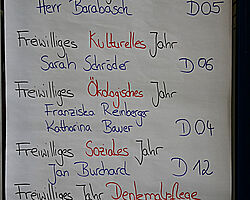 Herr Barabasch D05
Freiwilliges Kulturelles Jahr
Sarah Schröder D06
Freiwilliges Ökologisches Jahr
Franziska Reinberger
Katharina Bauer D04
Freiwilliges Soziales Jahr
Jan Burchard D12
Freiwilliges Jahr Denkmalpflege